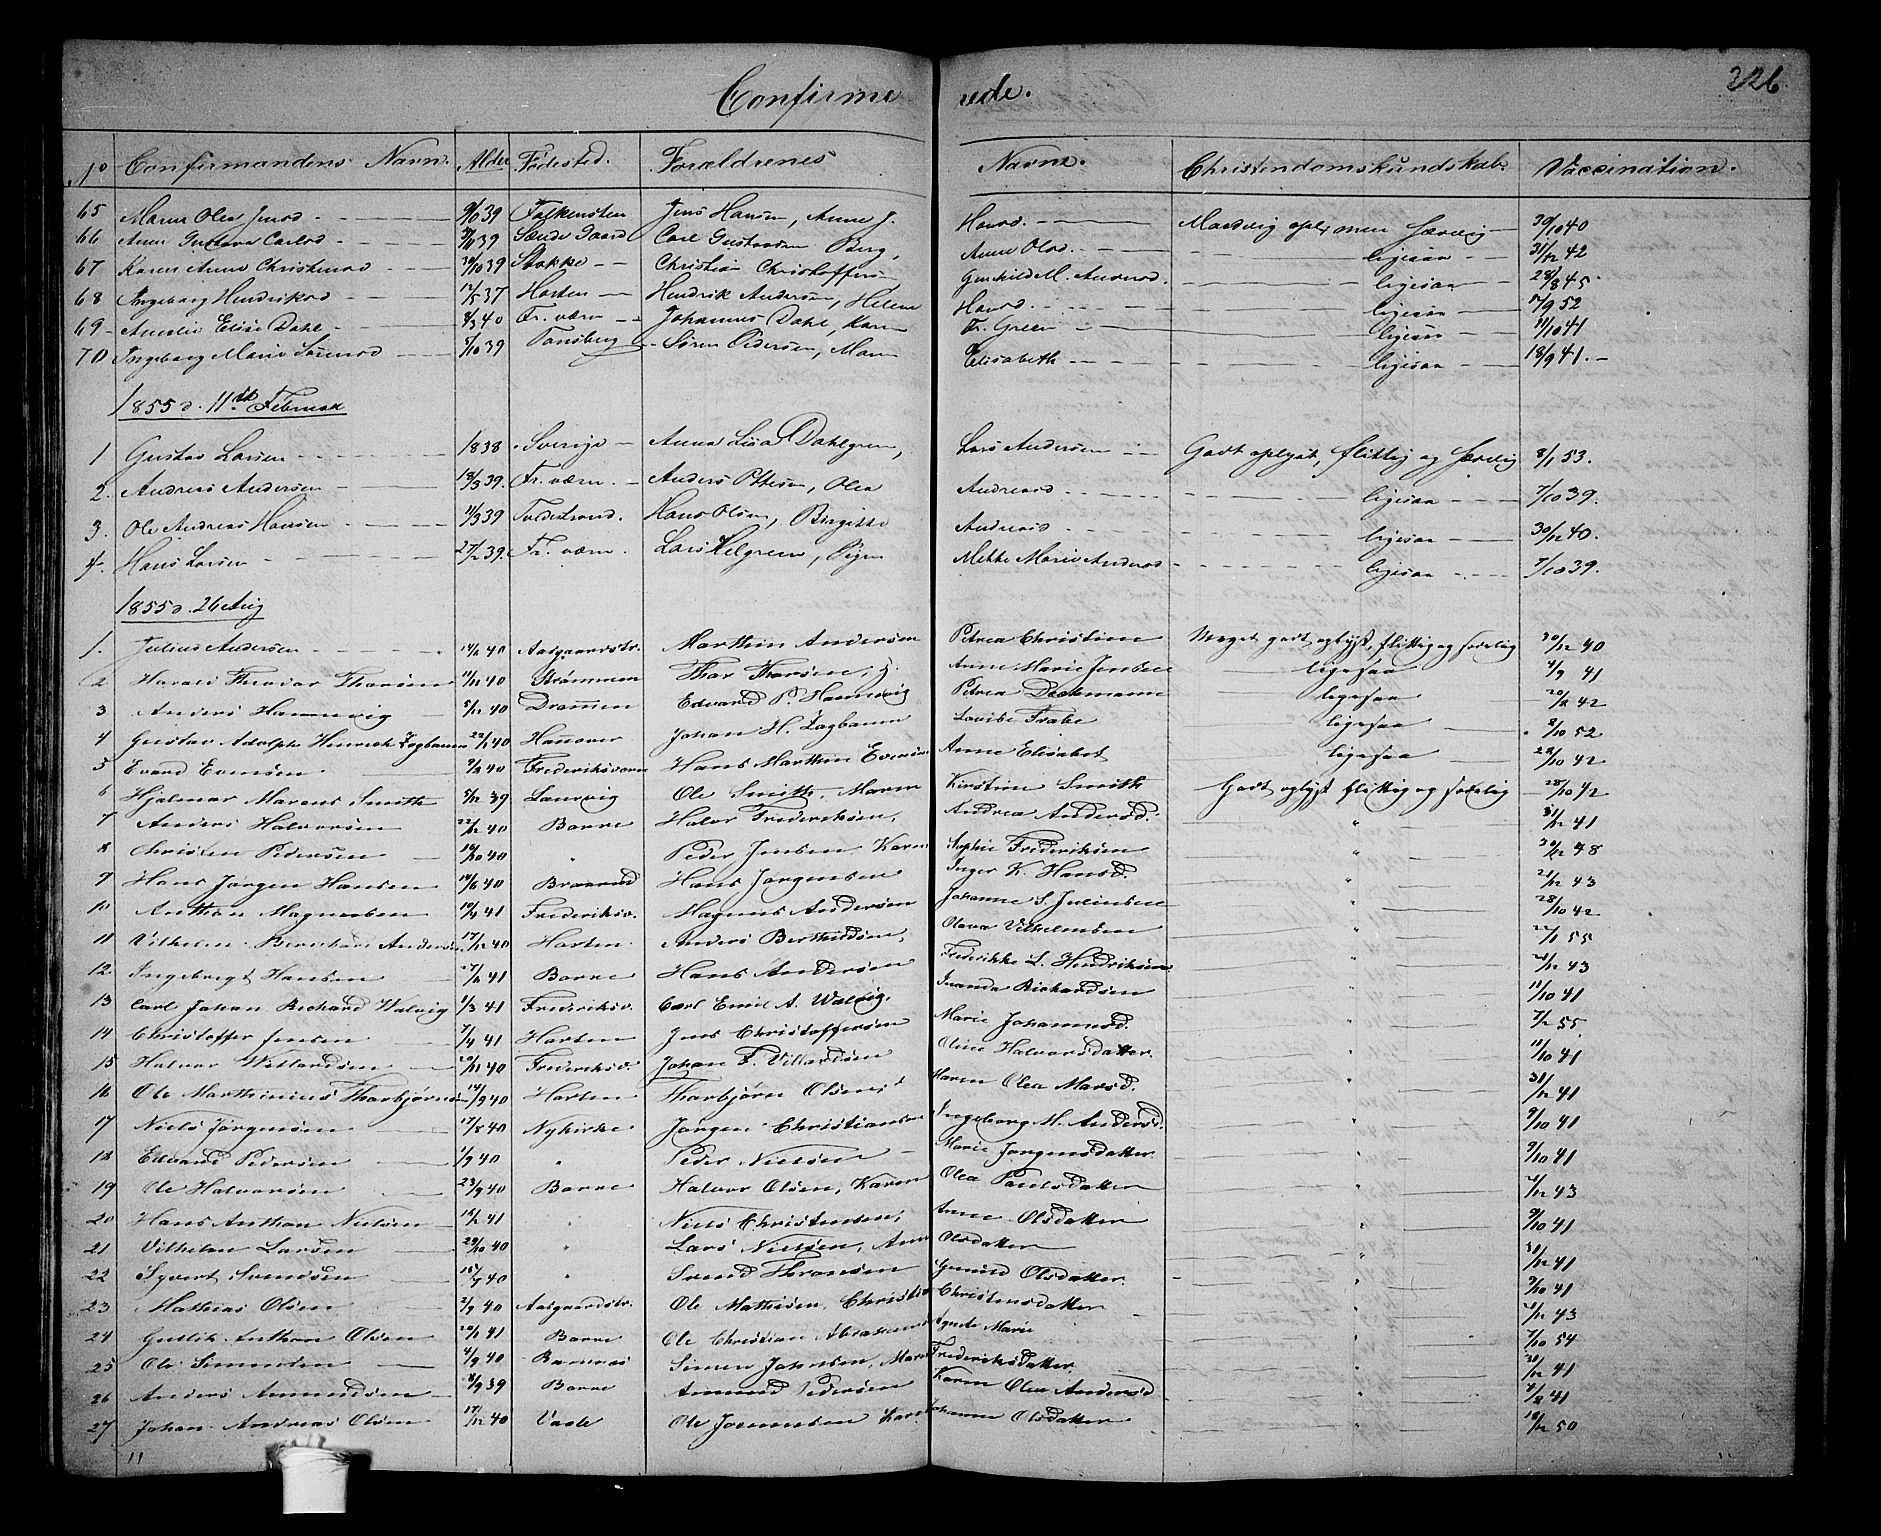 Confirmerede. 326
No Confirmandens Navn. Alder Fødested. Forældrenes Navne. Christendomskundskab. Vaccination.
65 Maren Olea Jensd. 9/10 39 Falkensten Jens Hansen, Anne J. Hansd. 30/10 40
66 Anne Gustava Carlsd. 39 Carl Gustavsen Berg, Anne Olsd. ligesaa 31/12 42
67 Karen Anne Christensd 30/10 39 Stokke Christian Christoffers Gunhild M. Andersd. ligesaa 28/8 45.
68 Ingeborg Hendriksd 12/5 37 Horten Hendrik Andersen, Helene Hansd. ligesaa 5/9 52
69 Amalie Elise Dahl 8/3 40 Fr. værn Johannes Dahl, Karen Fr. Green ligesaa 11/10 41
70 Ingeborg Marie Sørensd 5/10 39 Tønsberg Søren Pedersen, Maren Elisabeth ligesaa 18/9 41.
1855 d. 11te Februar
1 Gustav Larsen 1838 Sverige Anna Lisa Dahlgren, Lars Andersen Godt oplyst, flittig og sædelig 8/1 53.
2. Andreas Andersen 18/3 39. Fr. værn. Anders Ottesen, Olea Andreasd ligesaa 7/10 39.
3. Ole Andreas Hansen 11/3 39 Tvedestrand. Hans Olsen, Birgitte Andreasd ligesaa 30/12 40.
4. Hans Larsen 27/2 39. Fr. værn. Lars Helgren, Pigen Mette Marie Andersd ligesaa 7/10 39.
1855 d. 26 Aug
1. Julius Andersen 14/6 40 Aasgaardstr. Marthin Andersen Petrea Christine Meget godt oplyst, flittig og sædelig 30/12 40
2 Harald Theodor Thorsen 11/11 40 Strømmen Thor Thorsen, J. Anne Marie Jensen ligesaa 4/9 41
3 Anders Hannevig 5/12 40 Drammen Edvard P. Hannevig Petrea Deekmann ligesaa 42
4 Gustav Adolph Hinrich Zogbaum 22/1 40 Hanover Johan H. Zogbaum Lovise Trabe ligesaa 8/10 52
5 Evard Evensen 9/8 40 Frederiksværn Hans Marthin Evensen Anne Elisabet ligesaa 28/10 42
6 Hjalmar Marens Smith 5/12 39 Laurvig Ole Smith, Maren Kirstine Smith Godt oplyst flittig og sædelig 28/10 42
7 Anders Halvorsen 22/12 40 Borre Halvor Frederiksen, Andrea Andersd. " 31/12 41
8 Christen Pedersen 10/10 40 " Peder Jensen Karen Sophie Frederiksen " 30/12 48
9 Hans Jørgen Hansen 14/6 40 Hans Jørgensen Inger K. Hansd. " 21/12 43
10 Anthon Magnussen 10/4 41 Frederiksv. Magnus Andersen Johanne S. Juliussen " 28/10 42
11 Vilhelm Bernhard Andersen 17/12 40 Horten. Anders Berthudsen, Olava Vilhelmsen " 55
12. Ingebregt Hansen 27/6 41 Borre Hans Andersen Frederikke L. Hendriksen " 21/12 43
13 Carl Johan Richard Walvig 1/3 41 Frederiksv. Carl Emil A. Walvig. Inanda Richardsen " 11/10 41
14 Christoffer Jensen 7/4 41 Horten Jens Christoffersen Marie Johannesd. " 7/2 55
15 Halvor Willardsen 20/11 40 Frederiksv. Johan F. Villardsen Oline Halvorsdatter. " 11/10 41
16 Ole Marthinius Thorbjørnsen 14/9 40 Horten Thorbjørn Olsen Maren Olea Marsd. " 31/12 41
17 Niels Jørgensen 17/8 40 Nykirke Jørgen Christiansen Ingeborg M. Andersd. " 9/10 41
18 Edvard Pedersen 1/9 40 " Peder Nielsen Marie Jørgensdatter " 9/10 41
19 Ole Halvorsen 23/9 40 Borre Halvor Olsen, Karen Olea Paulsdatter " 21/12 43
20 Hans Anthon Nielsen 16/2 41 " Niels Christensen, Anne Olsdatter " 9/10 41
21 Vilhelm Larsen 29/10 40 " Lars Nielsen, Anne Olsdatter " 31/12 41
22 Syvert Svendsen 15/9 40 " Svend Thronsen Gunild Olsdatter. " 9/10 41
23 Mathias Olsen 2/9 40 Aasgaardstr. Ole Mathisen, Christine Christensdatter " 21/12 43
24 Gullik Anthon Olsen 20/1 41 Borre Ole Christian Abrahamsen Agnete Marie " 7/10 54
25 Ole Simensen 4/9 40 Simen Johnsen, Maren Frederiksdatter. " 31/12 41
26 Anders Ammundsen 8/9 39 Borre Ammund Pedersen Karen Olea Andersd " 41
27 Johan Andreas Olsen 17/12 40 Vaale Ole Joensen Karen Johanne Olsdatter " 18/12 50